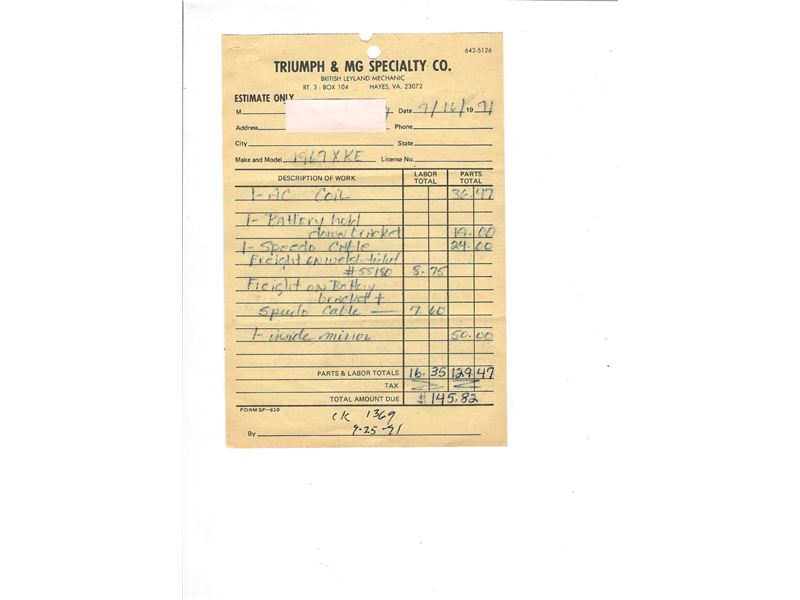 642-5126
TRIUMPH & MG SPECIALTY CO.
BRITISH LEYLAND MECHANIC
RT. 3 - BOX 104 HAYES, VA. 23072
ESTIMATE ONLY
M Date 9/16/ 19 91
Address Phone
City State
Make and Model 1967 XKE License No.
DESCRIPTION OF WORK LABOR TOTAL PARTS TOTAL
1- AC Coil 36.47
1- Battery hold
down bracket 19.00
1- Speedo Cable 24.00
Freight on ticket
#55180 8.75
Freight on Battery
bracket +
Speedo Cable — 7.60
1- inside mirror 50.00
PARTS & LABOR TOTALS 16.35 129.47
TAX
TOTAL AMOUNT DUE $145.82
FORM SF-610
CK 1369
By 9-25-91